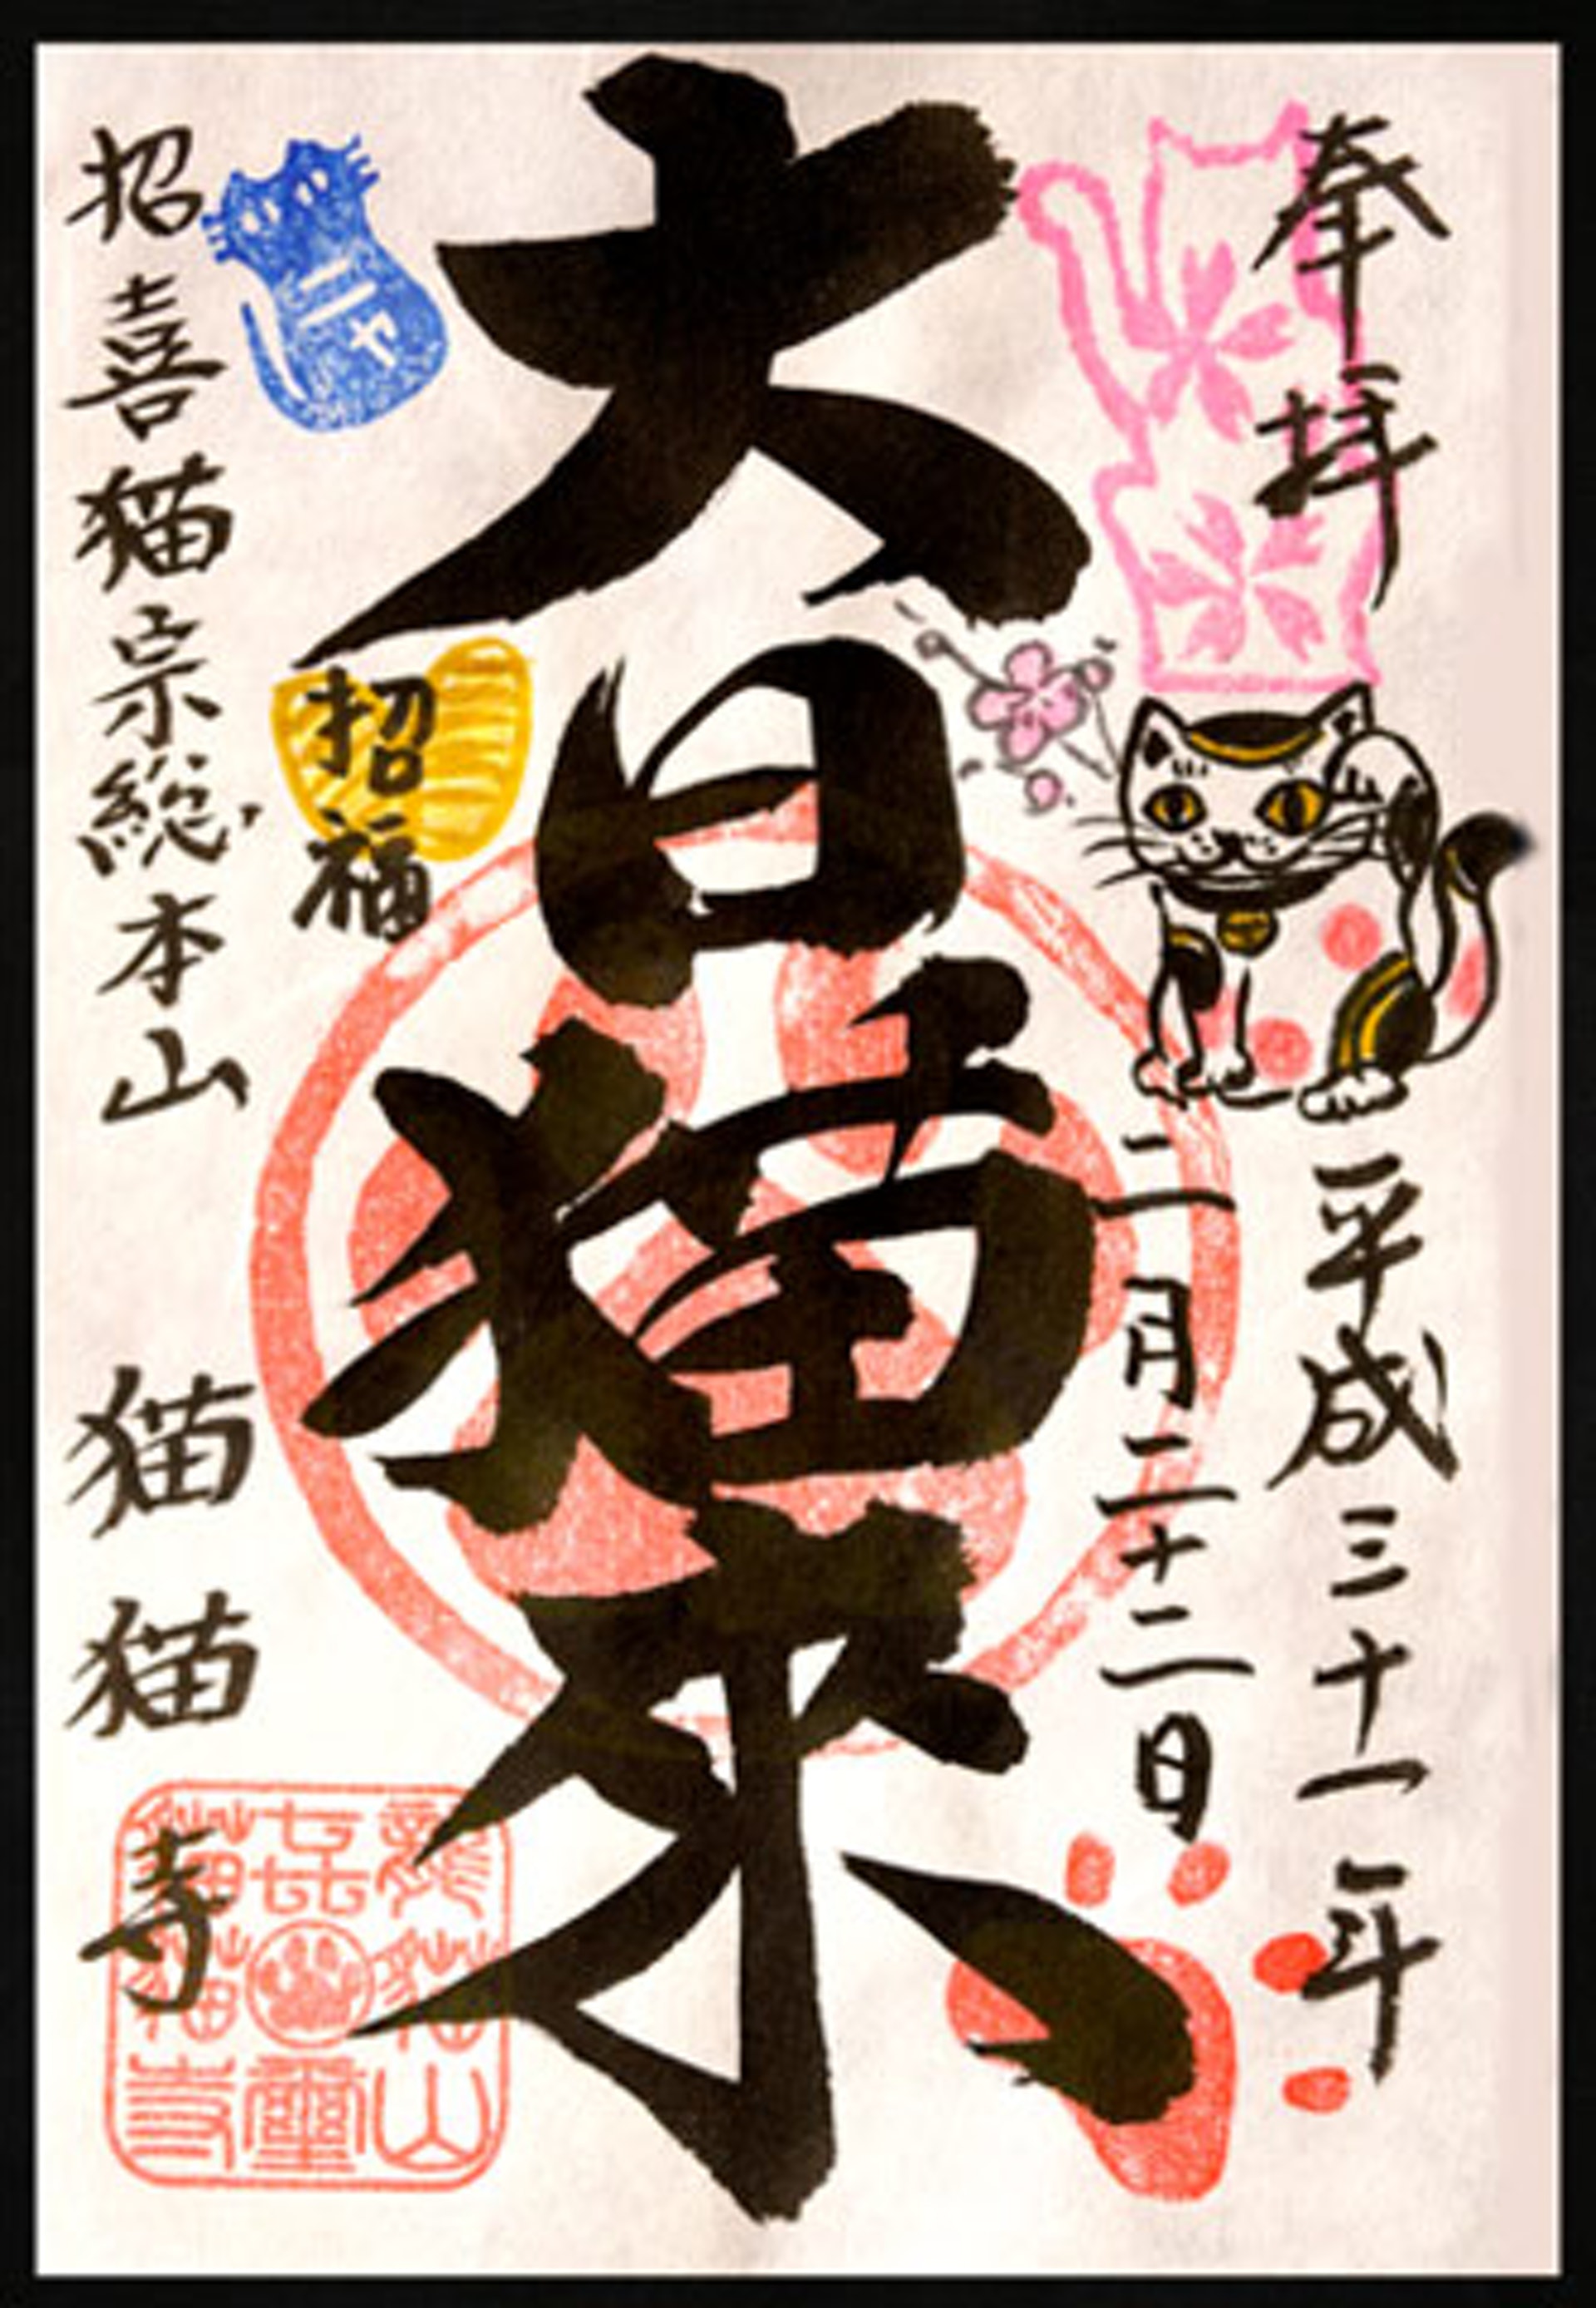 奉拝
平成三十一年
二月二十二日
大日猫来
招福
ニャ
招喜猫宗総本山
猫猫寺